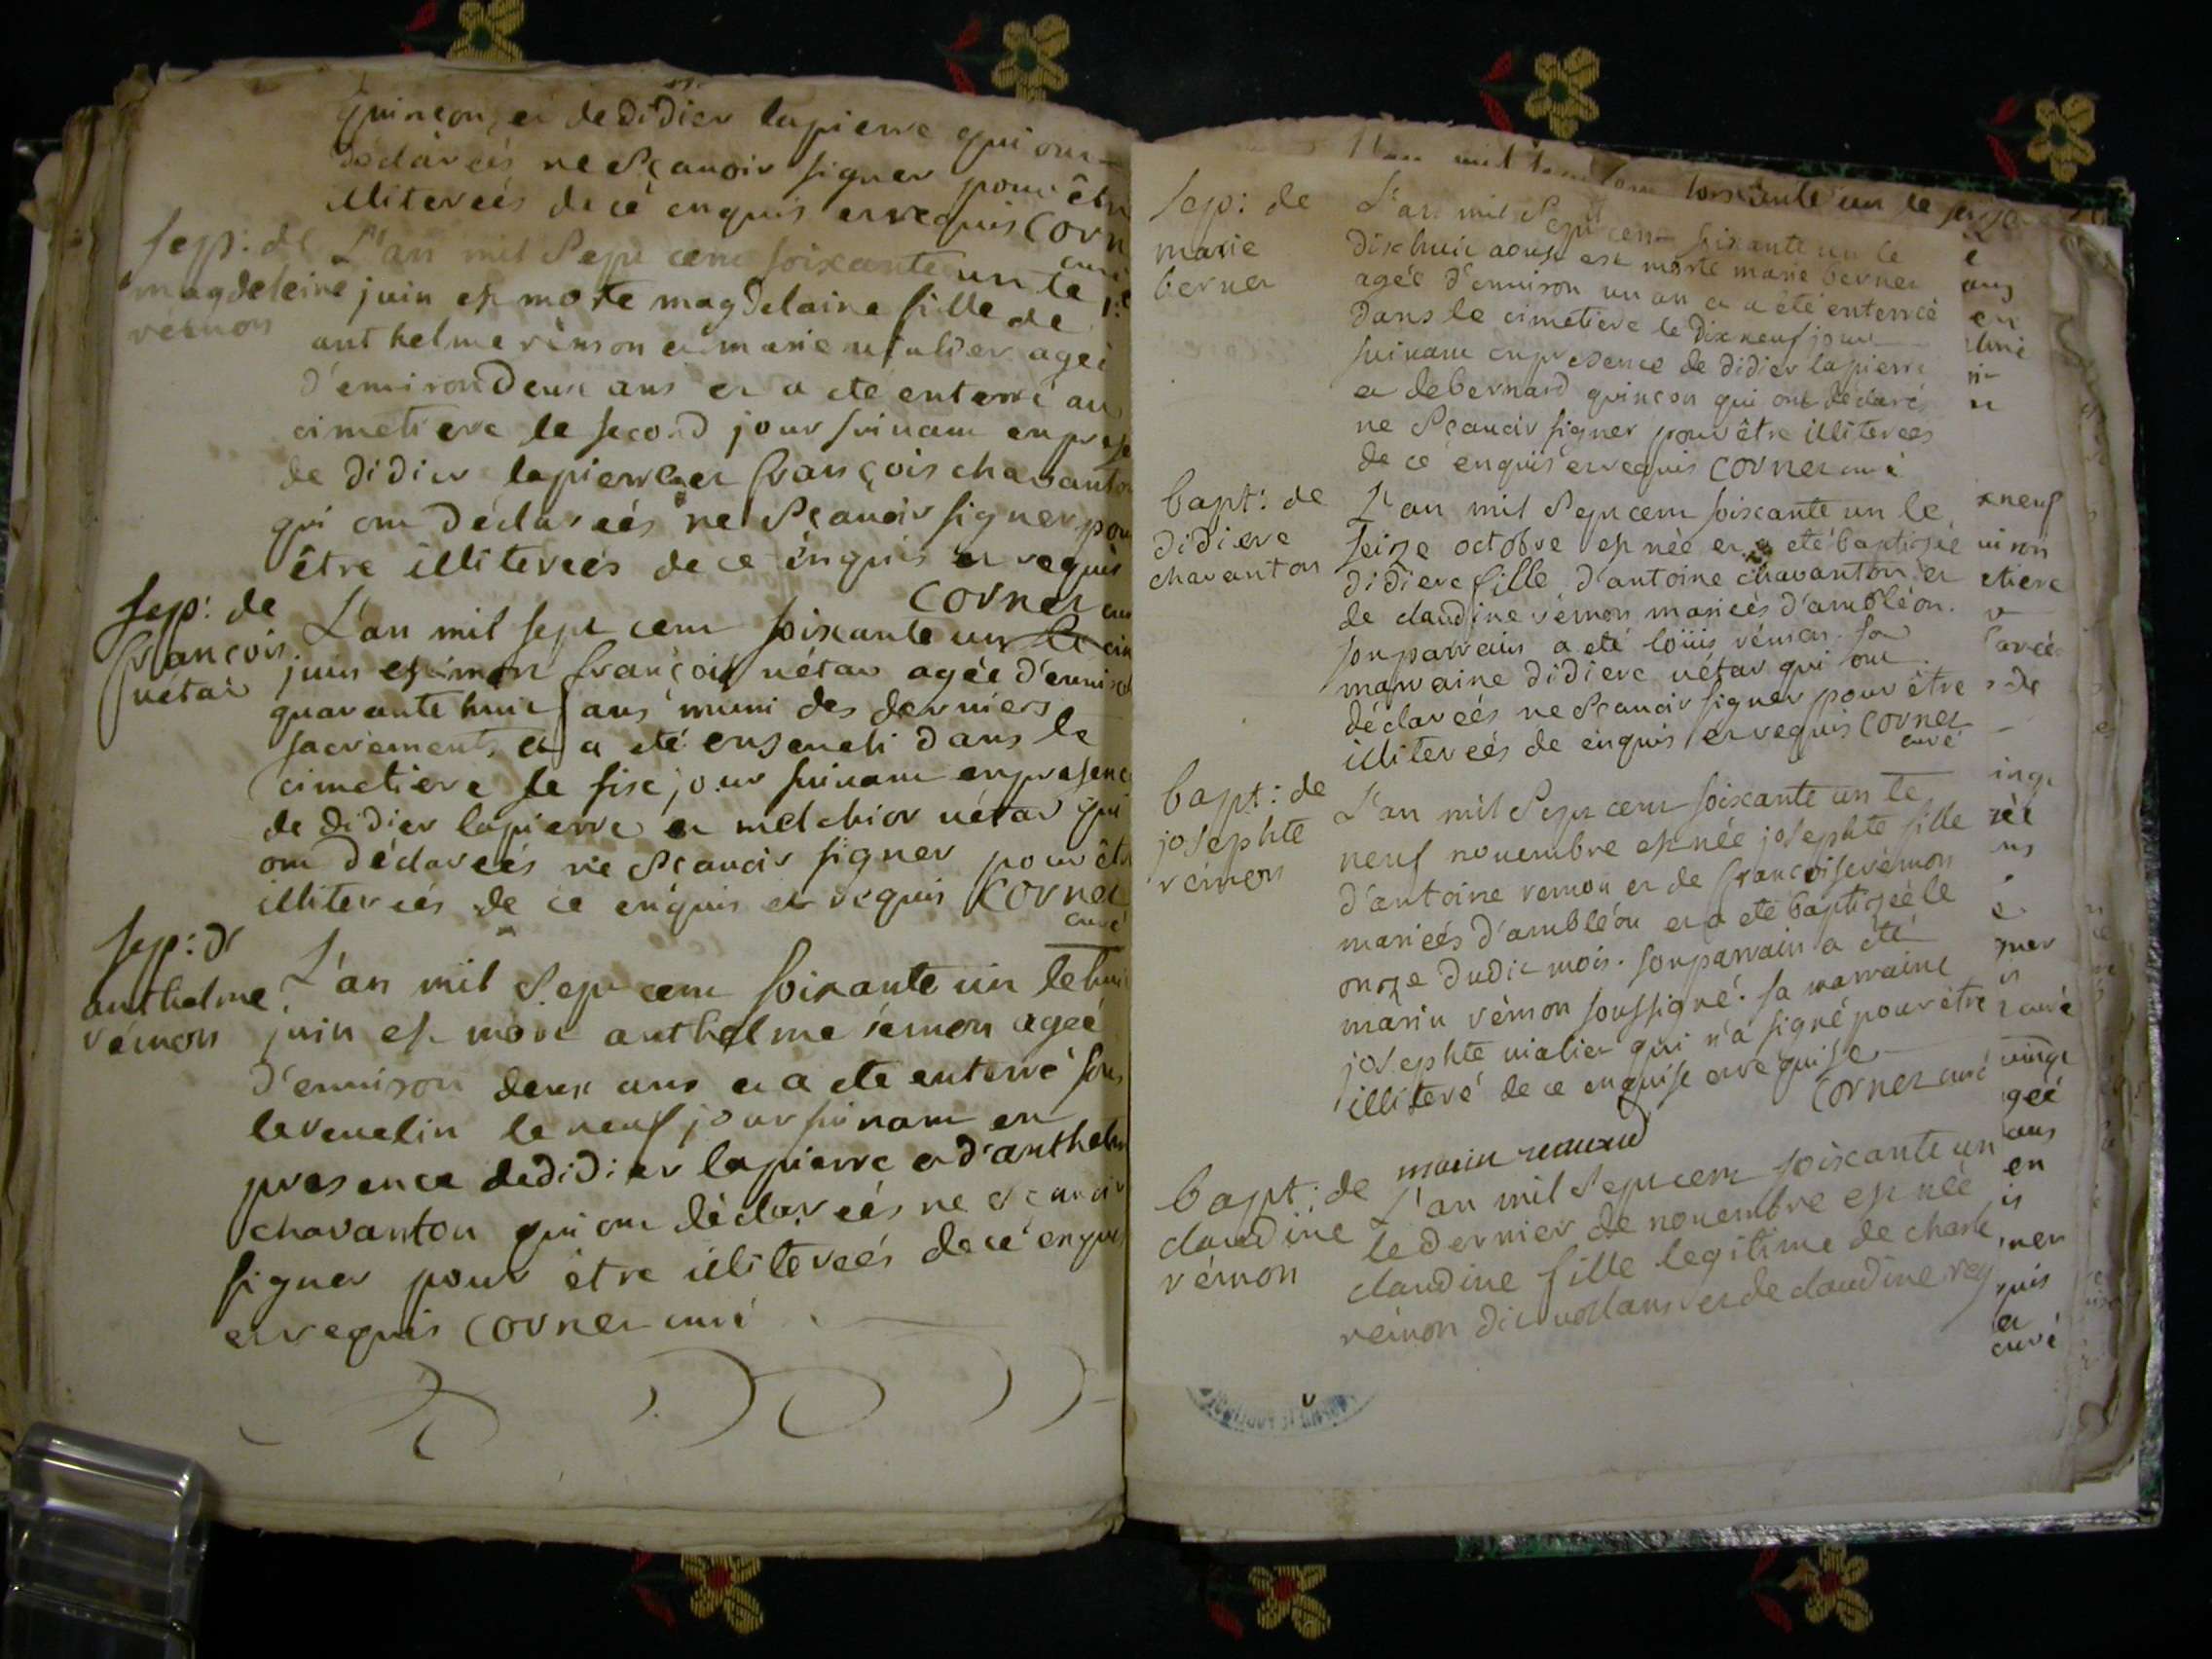 quinson et de didier lapierre qui ont
déclareés ne sçauoir signer pour être
illitereés de cé enquis et requis Cornet
curé
sep: de
magdeleine
rémon
L'an mil sept cent soixante un le 1.er
juin est morte magdelaine fille de
anthelme rémon et marie agéé
d'enuiron deux ans et a eté enterré au
cimetiere le second jour suiuant en prese
de didier lapierre et françois chavanton
qui ont déclareés ne sçauoir signer pour
être illitereés de ce enquis et requis
Cornet curé
sep: de
françois
uétar
L'an mil sept cent soixante un le cin
juin est mort françois uétar agée d'enuiron
quarante huit ans muni des derniers
sacrements et a eté enseueli dans le
cimetiere le six jour suiuant en presence
de didier lapierre et melchior uétar qui
ont déclareés ne sçauoir signer pour être
illitereés de ce enquis et requis Cornet
curé
sep: de
anthelme
rémon
L'an mil sept cent soixante un le huit
juin est mort anthelme rémon ageé
d'enuiron deux ans et a eté enterré sous
le neuf jour suiuant en
presence de didier lapierre et d'anthelme
chavanton qui ont déclareés ne sçauoir
signer pour être illitereés de cé enquis
et requis Cornet curé
soixante un le
sep: de
marie
bernet
L'an mil sept cent soixante un le
dix huit aoust est morte marie bernet
agée d'enuiron un an et a été enterrée
dans le cimetiere le dix neuf jour
suiuant en presence de didier lapierre
et de bernard quinson qui ont déclarés
ne sçauoir signer pour être illitereés
de cé enquis et requis Cornet curé
bapt: de
didiere
chavanton
L'an mil sept cent soixante un le
seize octobre est née et a eté baptisée
didiere fille d'antoine chavanton et
de claudine rémon marieés d'ambléon.
son parrain a eté loüis rémon. sa
marraine didiere uétar qui ont
déclareés ne sçauoir signer pour être
illitereés de enquis et requis Cornet
curé
bapt: de
josephte
rémon
L'an mil sept cent soixante un le
neuf nouembre est née josephte fille
d'antoine remon et de françoise rémon
marieés d'ambléon et a eté baptiseé le
onze dudit mois. son parrain a été
marin rémon soussigné. sa marraine
josephte uialier qui n'a signé pour être
illiteré de ce enquise et requise
Cornet curé
marin remond
bapt: de
claudine
rémon
L'an mil sept cent soixante un
le dernier de nouembre est née
claudine fille legitime de charle
rémon dit et de claudine rey